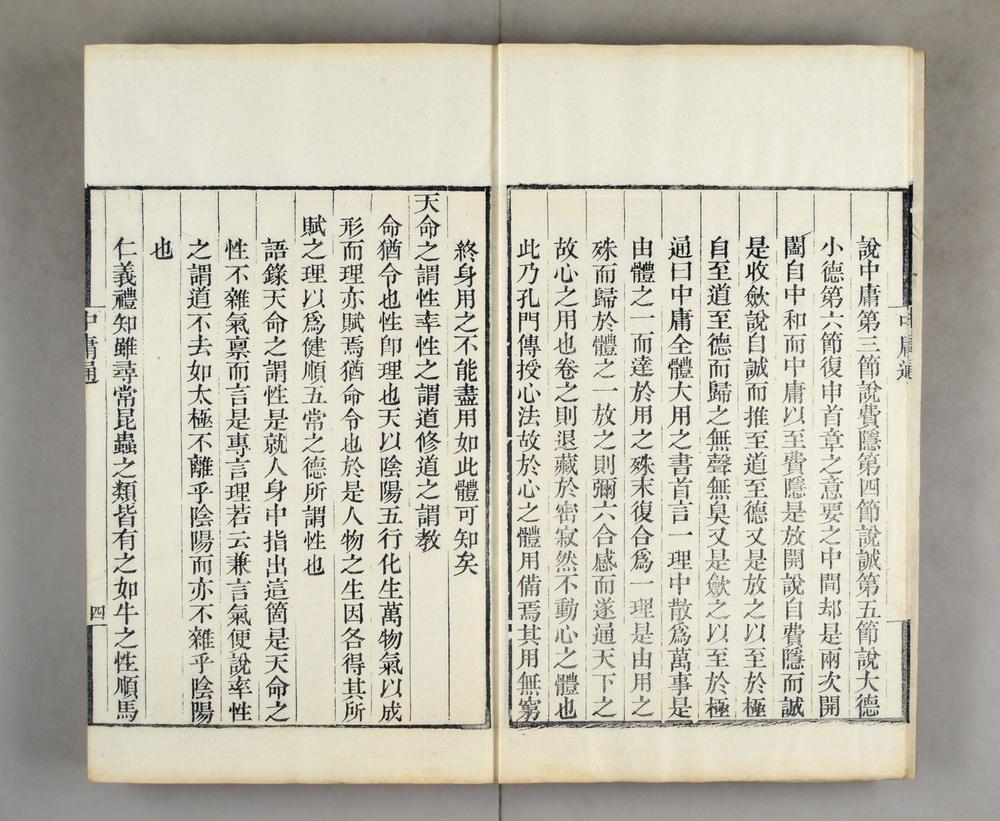 說中庸第三節說費隱第四節說誠第五節說大德
小德第六節復申首章之意要之中間却是兩次開
闔自中和而中庸以至費隱是放開說自費隱而誠
是收斂說自誠而推至道至德又是放之以至於極
自至道至德而歸之無聲無臭又是歛之以至於極
通曰中庸全體大用之書首言一理中散爲萬事是
由體之一而達於用之殊末復合爲一理是由用之
殊而歸於體之一放之則彌六合感而遂通天下之
故心之用也卷之則退藏於密寂然不動心之體也
此乃孔門傳授心法故於心之體用備焉其用無窮
終身用之不能盡用如此體可知矣
天命之謂性率性之謂道修道之謂教
命猶令也性卽理也天以陰陽五行化生萬物氣以成
形而理亦賦焉猶命令也於是人物之生因各得其所
賦之理以爲健順五常之德所謂性也
語錄天命之謂性是就人身中指出這箇是天命之
性不雜氣稟而言是專言理若云兼言氣便說率性
之謂道不去如太極不離乎陰陽而亦不雜乎陰陽
也
仁義禮知雖尋常昆蟲之類皆有之如牛之性順馬
中庸通
四